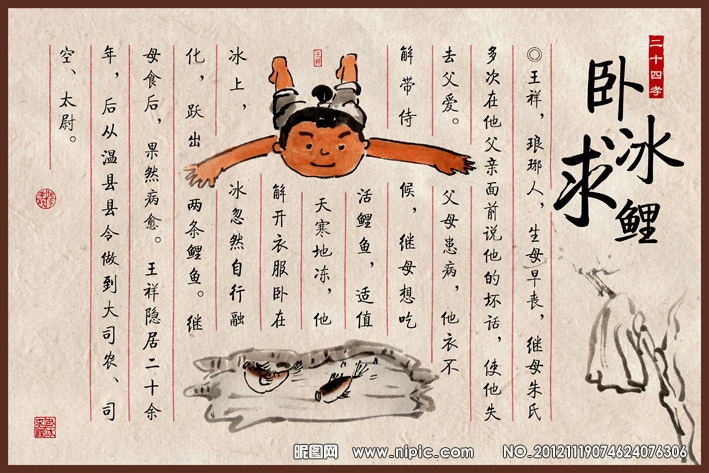 二十四孝
卧冰求鲤
◎王祥，琅琊人，生母早丧，继母朱氏
多次在他父亲面前说他的坏话，使他失
去父爱。父母患病，他衣不
解带侍候，继母想吃
活鲤鱼，适值
天寒地冻，他
解开衣服卧在
冰上，冰忽然自行融
化，跃出两条鲤鱼。继
母食后，果然病愈。王祥隐居二十余
年，后从温县县令做到大司农、司
空、太尉。
王祥
卧冰求鲤
昵图网 www.nipic.com NO.20121119074624076306